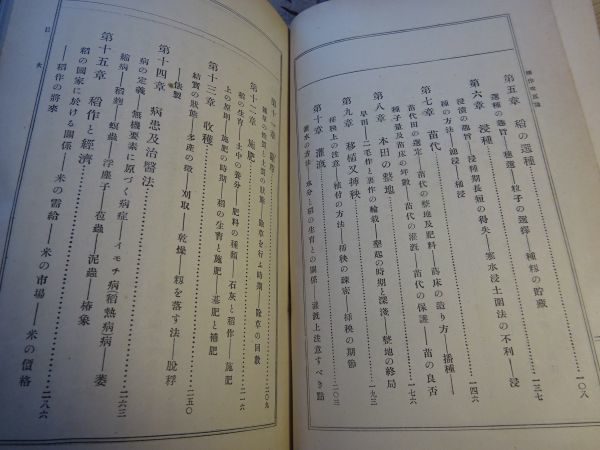 第五章 稻の選種……一〇八
選種の趣旨――穗選――粒子の選擇――種籾の貯藏
第六章 浸種……一三七
浸漬の趣旨――浸種期長短の得失――寒水浸土圍法の不利――浸
種の方法――池浸――桶浸
第七章 苗代……一四六
苗代田の選定――苗代の整地及肥料――苗床の造り方――播種――
種子量及苗床の坪數――苗代の灌漑――苗代の保護――苗の良否
第八章 本田の整地……一七六
早田――二毛作と裏作の輪栽――墾起の時期と深淺――整地の終局
第九章 移植又揷秧……一九三
揷秧上の注意――植付の方法――揷秧の疎密――揷秧の期節
第十章 灌漑……二〇三
灌水の方法――水分と稻の生育との關係――灌漑上注意すべき點
目次
第十一章 除草……二〇九
雜草の種類と土壤の狀態――除草を行ふ時期――除草の回數
第十二章 施肥……二一六
稻の生育――水中の養分――肥料の種類――石灰と稻作――施肥
上の原則――施肥の時期――稻の生育と施肥――基肥と補肥
第十三章 收穫……二五〇
結實の狀態――多產の徵――刈取――乾燥――籾を落す法――脫稃
――俵製
第十四章 病患及治醫法……二六三
病の定義――無機要素に原づく病症――イモチ病(稻熱病)病――萎
縮病――稻麴――螟蟲――浮塵子――苞蟲――泥蟲――椿象
第十五章 稻作と經濟……二八六
稻の國家に於ける關係――米の需給――米の市場――米の價格
――稻作の將來